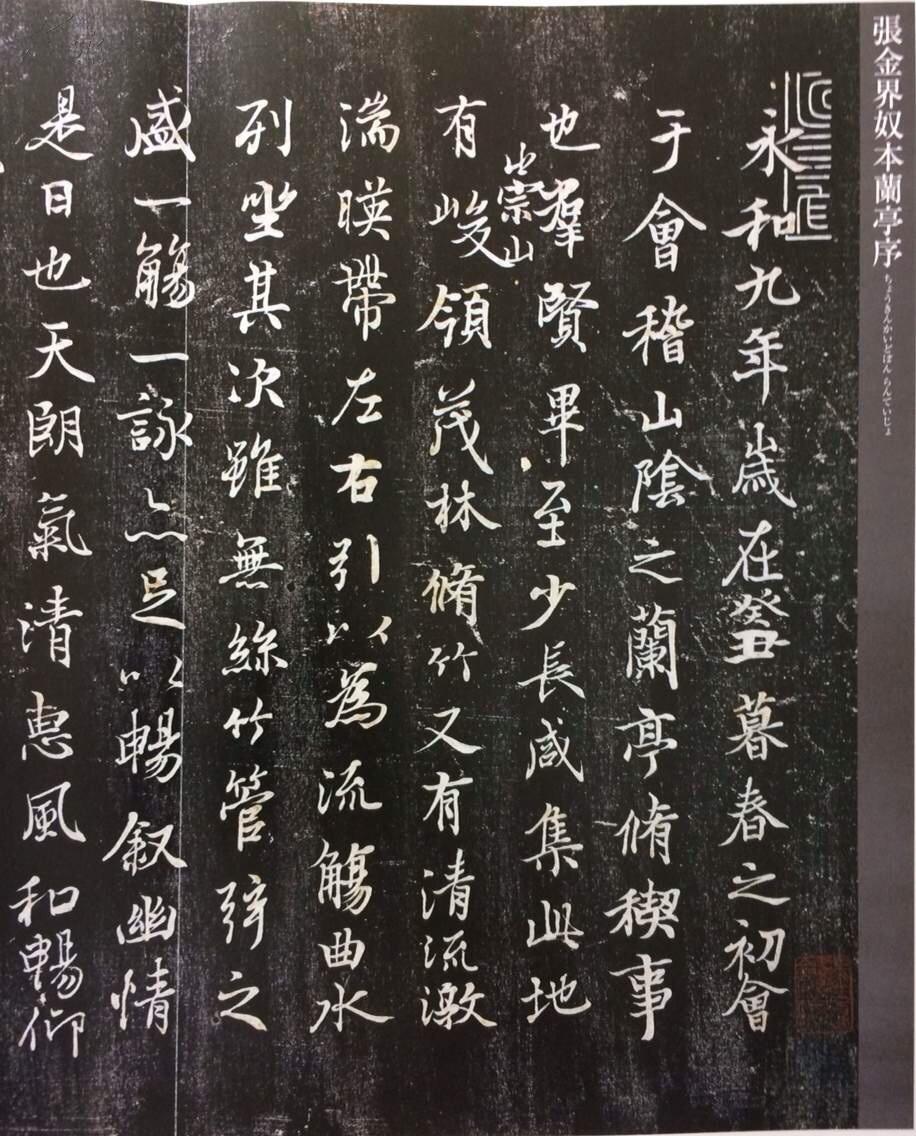 張金界奴本蘭亭序
ちょうきんかいどぼん らんていじょ
永和九年歲在癸丑暮春之初會
于會稽山陰之蘭亭脩稧事
也羣賢畢至少長咸集此地
有崇山峻領茂林脩竹又有清流激
湍暎帶左右引以為流觴曲水
列坐其次雖無絲竹管弦之
盛一觴一詠亦足以暢敘幽情
是日也天朗氣清惠風和暢仰